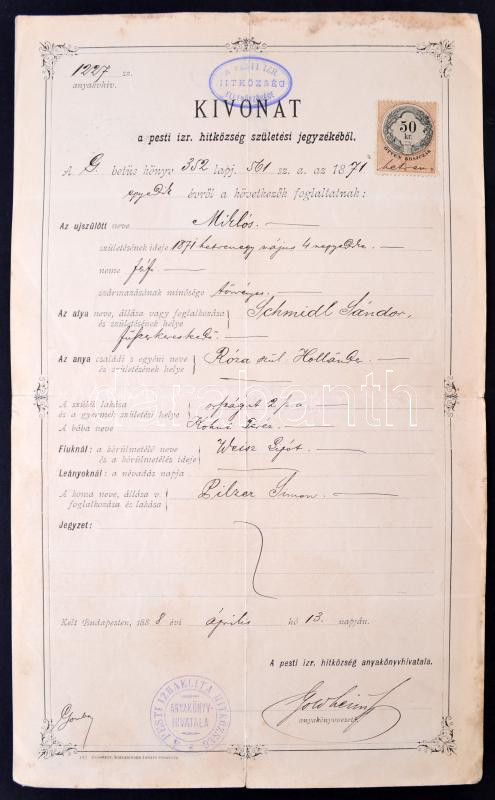 1227 sz.
anyakvkiv.
A PESTI IZR. HITKÖZSÉG
KIVONAT
50
kr.
a pesti izr. hitközség születési jegyzékéből.
A G. betüs könyv 352 lapj. 561 sz. a. az 1871
egyedik évről a következők foglaltatnak:
Az ujszülött neve Miklós.
születésének ideje 1871 hetvenegy május 4 negyedike.
neme férfi
származásának minősége törvényes.
Az atya neve, állása vagy foglalkozása Schmidl Sándor,
és születésének helye fűszerkereskedő
Az anya családi s egyéni neve Róza szül. Holländer
és születésének helye
A szülők lakása országút 2 sz.
és a gyermek születési helye
A bába neve Kohni Teréz
Fiuknál: a körülmetélő neve Weisz Lipót.
és a körülmetélés ideje
Leányoknál: a névadás napja
A koma neve, állása v. Pilzer Simon.
foglalkozása és lakása
Jegyzet:
darabanth
Kelt Budapesten, 1888 évi április hó 13. napján.
A pesti izr. hitközség anyakönyvhivatala.
anyakönyvvezető
A PESTI IZRAELITA HITKÖZSÉG
ANYAKÖNYV-
HIVATALA